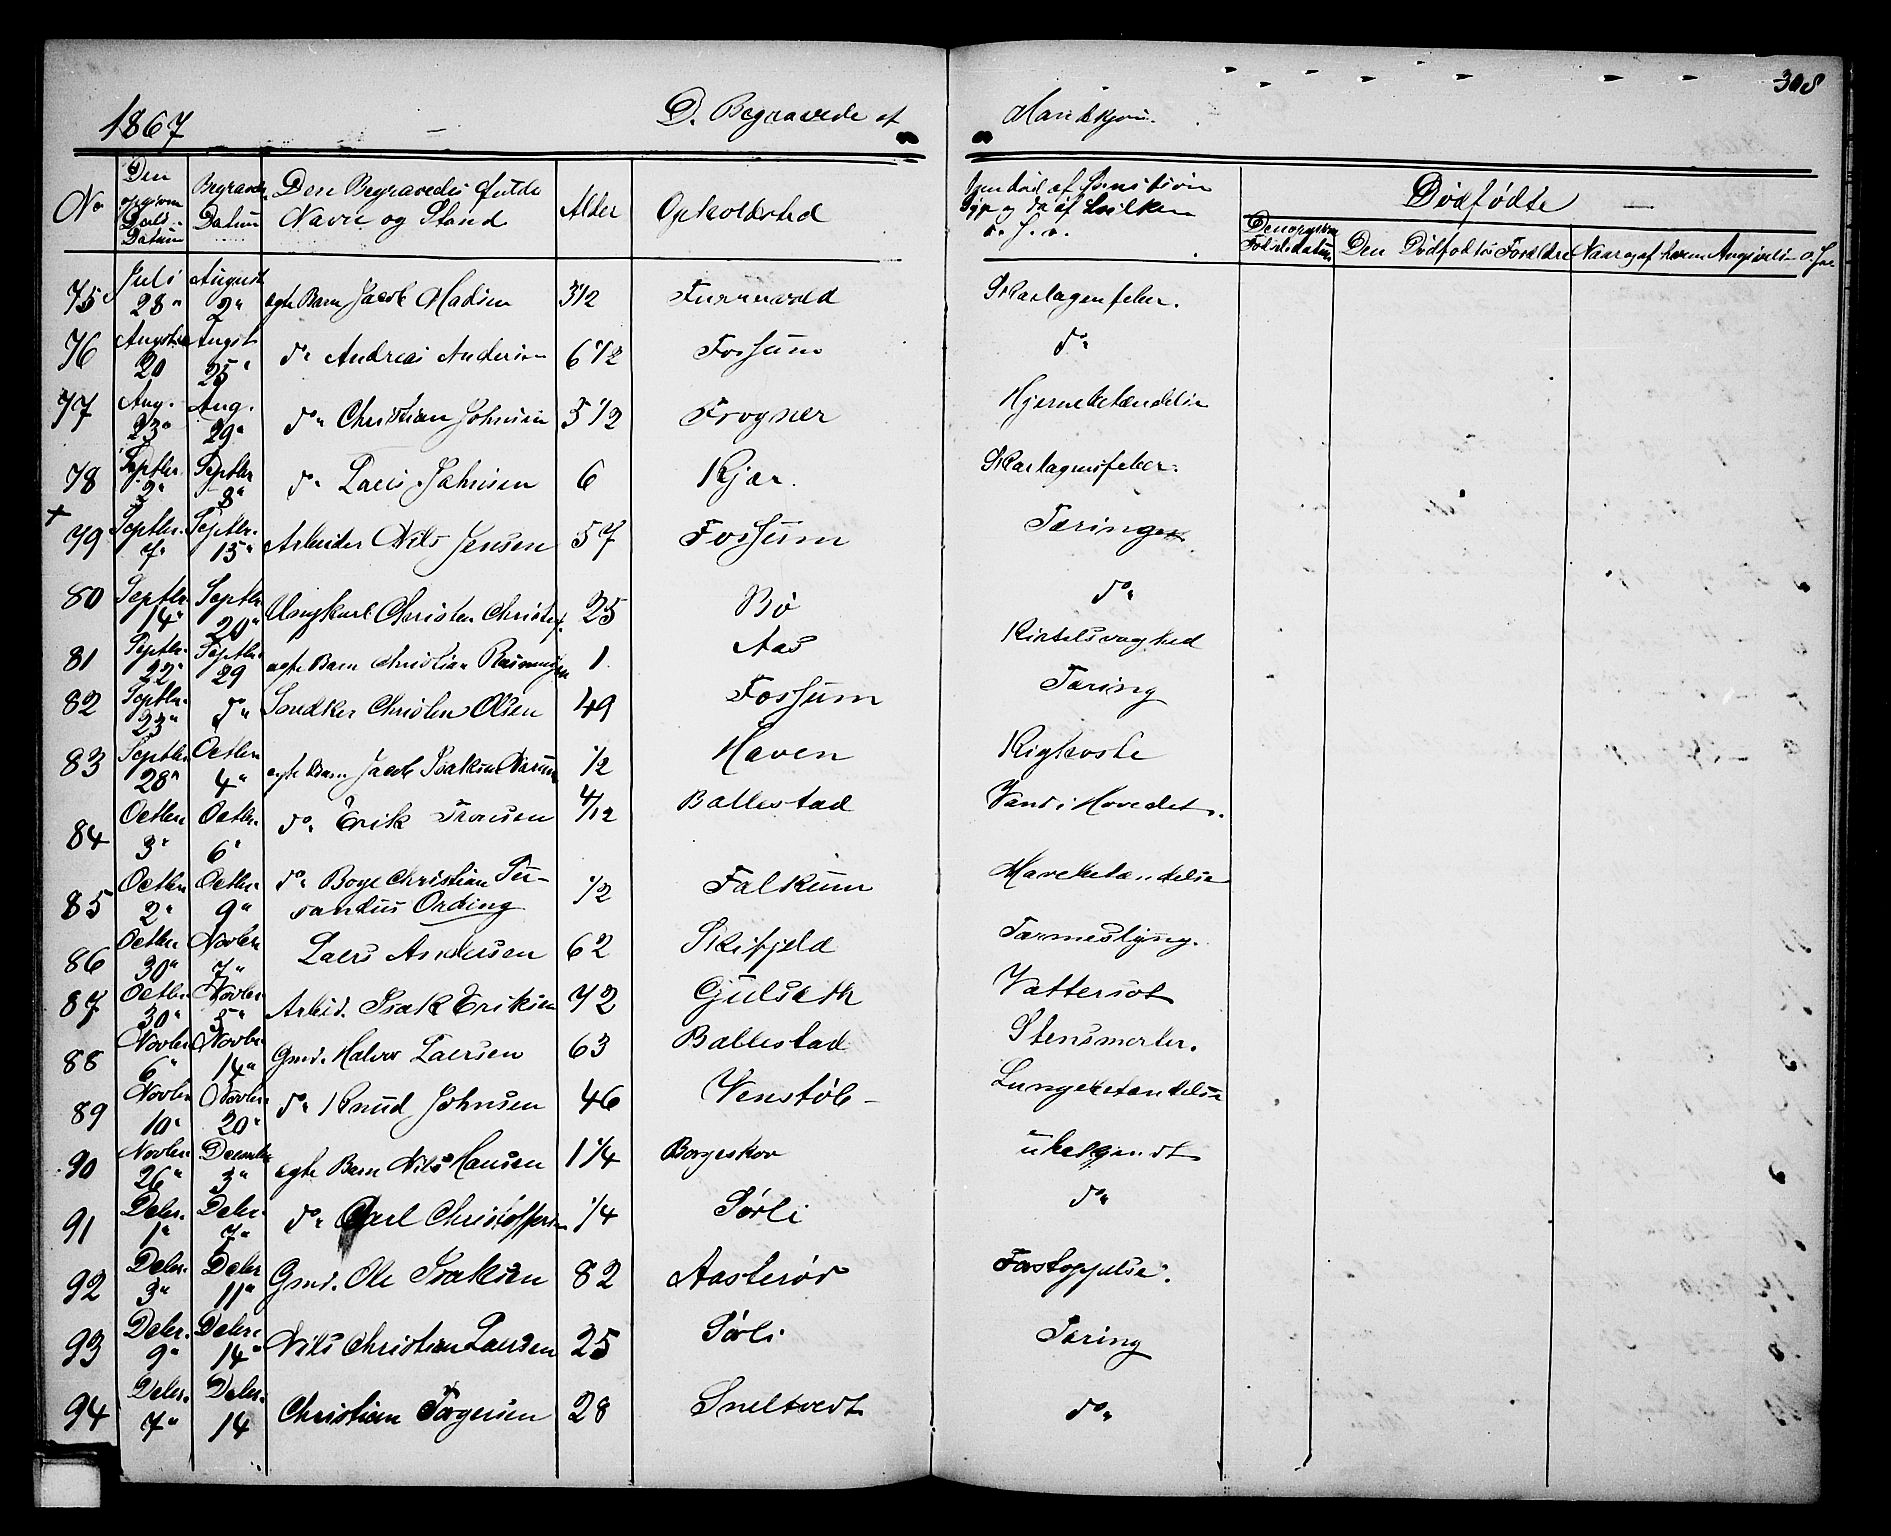 308
1867 D. Begravede af Mandkjøn.
No Den opgivne Døds Datum Begravede Datum Den Begravedes fulde Navn og Stand Alder Opholdsted Dødfødte
Den Dødfødtes Forældre
75 Juli 28" August 2" ægte Barn Jacob Madsen 3 1/2 Furuvald Skarlagenfeber.
76 20 Augst 25" do Andreas Andersen 6 1/2 Fossum do
77 Aug. 23" Aug. 29" do Christian Johnsen 5 1/2 Frogner Hjernebetændelse
78 Septbr. 2" Septbr 8" do Laers Johnsen 6 Kjær. Skarlagensfeber.
+ 79 Septbr. 7" Septbr. 15" Arbeider Nils Jensen 57 Fossum Tæring
80 Septbr 14" Septbr 20" Ungkarl Christen 25 Bö do
81 Septbr. 22" Septbr. 29 ægte Barn Christian Rasmussen 1. Aas Kirtelsvaghed
82 Septbr. 23" do Christen Olsen 49 Fossum Tæring
83 Septbr. 28" Octbr 4" ægte Barn Jacob Isaksen 1/2 Haven Kighoste
84 Octbr 3" Octbr 6" do Erik Tronsen 4/12 Ballestad Vand i Hovedet.
85 Octbr 2" Octbr. 9" do Boye Christian Fer-
nandus Ording 1/2 Falkum Mavebetændelse
86 Octbr 30" Novbr 7" Laers Andersen 62 Skifjeld Tarmeslyng.
87 Octbr 30" Novbr 5" Arbid. Isak Eriksen 72 Gjulseth Vattersot
88 Novbr 6" Novbr 14" Gmd. Halvor Laersen 63 Ballestad Stensmerter.
89 Novbr 10" Novbr 20" do Knud Johnsen 46 Venstöb Lungebetændelse
90 Novbr 26" December 3" ægte Barn Nils Hansen 1 1/4 Borgeskov ubekjendt
91 Debr. 1" Debr. 7" do Carl Christoffersen 1/4 Sörli do
92 Debr. 3" Debr 11" Gmd. Ole Isaksen 82 Aasteröd Forstoppelse.
93 Debr. 9" Debr. 14" Nils Christian Larsen 25 Sörli Tæring
94 Debr. 7" Debr. 14 Christian Torgersen 28 Sneltvedt do